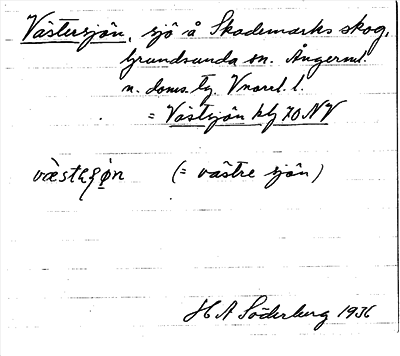 Västersjön, sjö å Skademarks skog,
Grundsunda sn. Ångerml.
n. doms. tg. Vnorrl. l.
= Västsjön kbj 70 NV
(= västre sjön)
H A Söderberg 1936